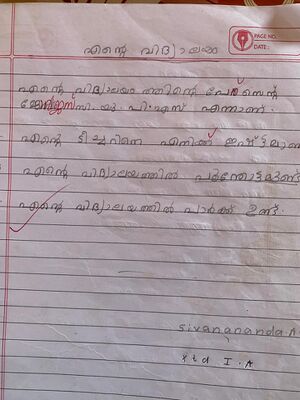 PAGE NO.:
DATE:
എന്റെ വിദ്യാലയം
എന്റെ വിദ്യാലയം ത്തിന്റെ പേര് സെന്റ്
ജോർജ്ജസ് സി.യു.പി.എസ് എന്നാണ്.
എന്റെ ടീച്ചറിനെ എനിക്ക് ഇഷ്ട്ടമാണ്
എന്റെ വിദ്യാലയത്തിൽ പൂന്തോട്ടമുണ്ട്
എന്റെ വിദ്യാലയത്തിൽ പാർക്ക് ഉണ്ട്.
sivanananda.A
std I.A